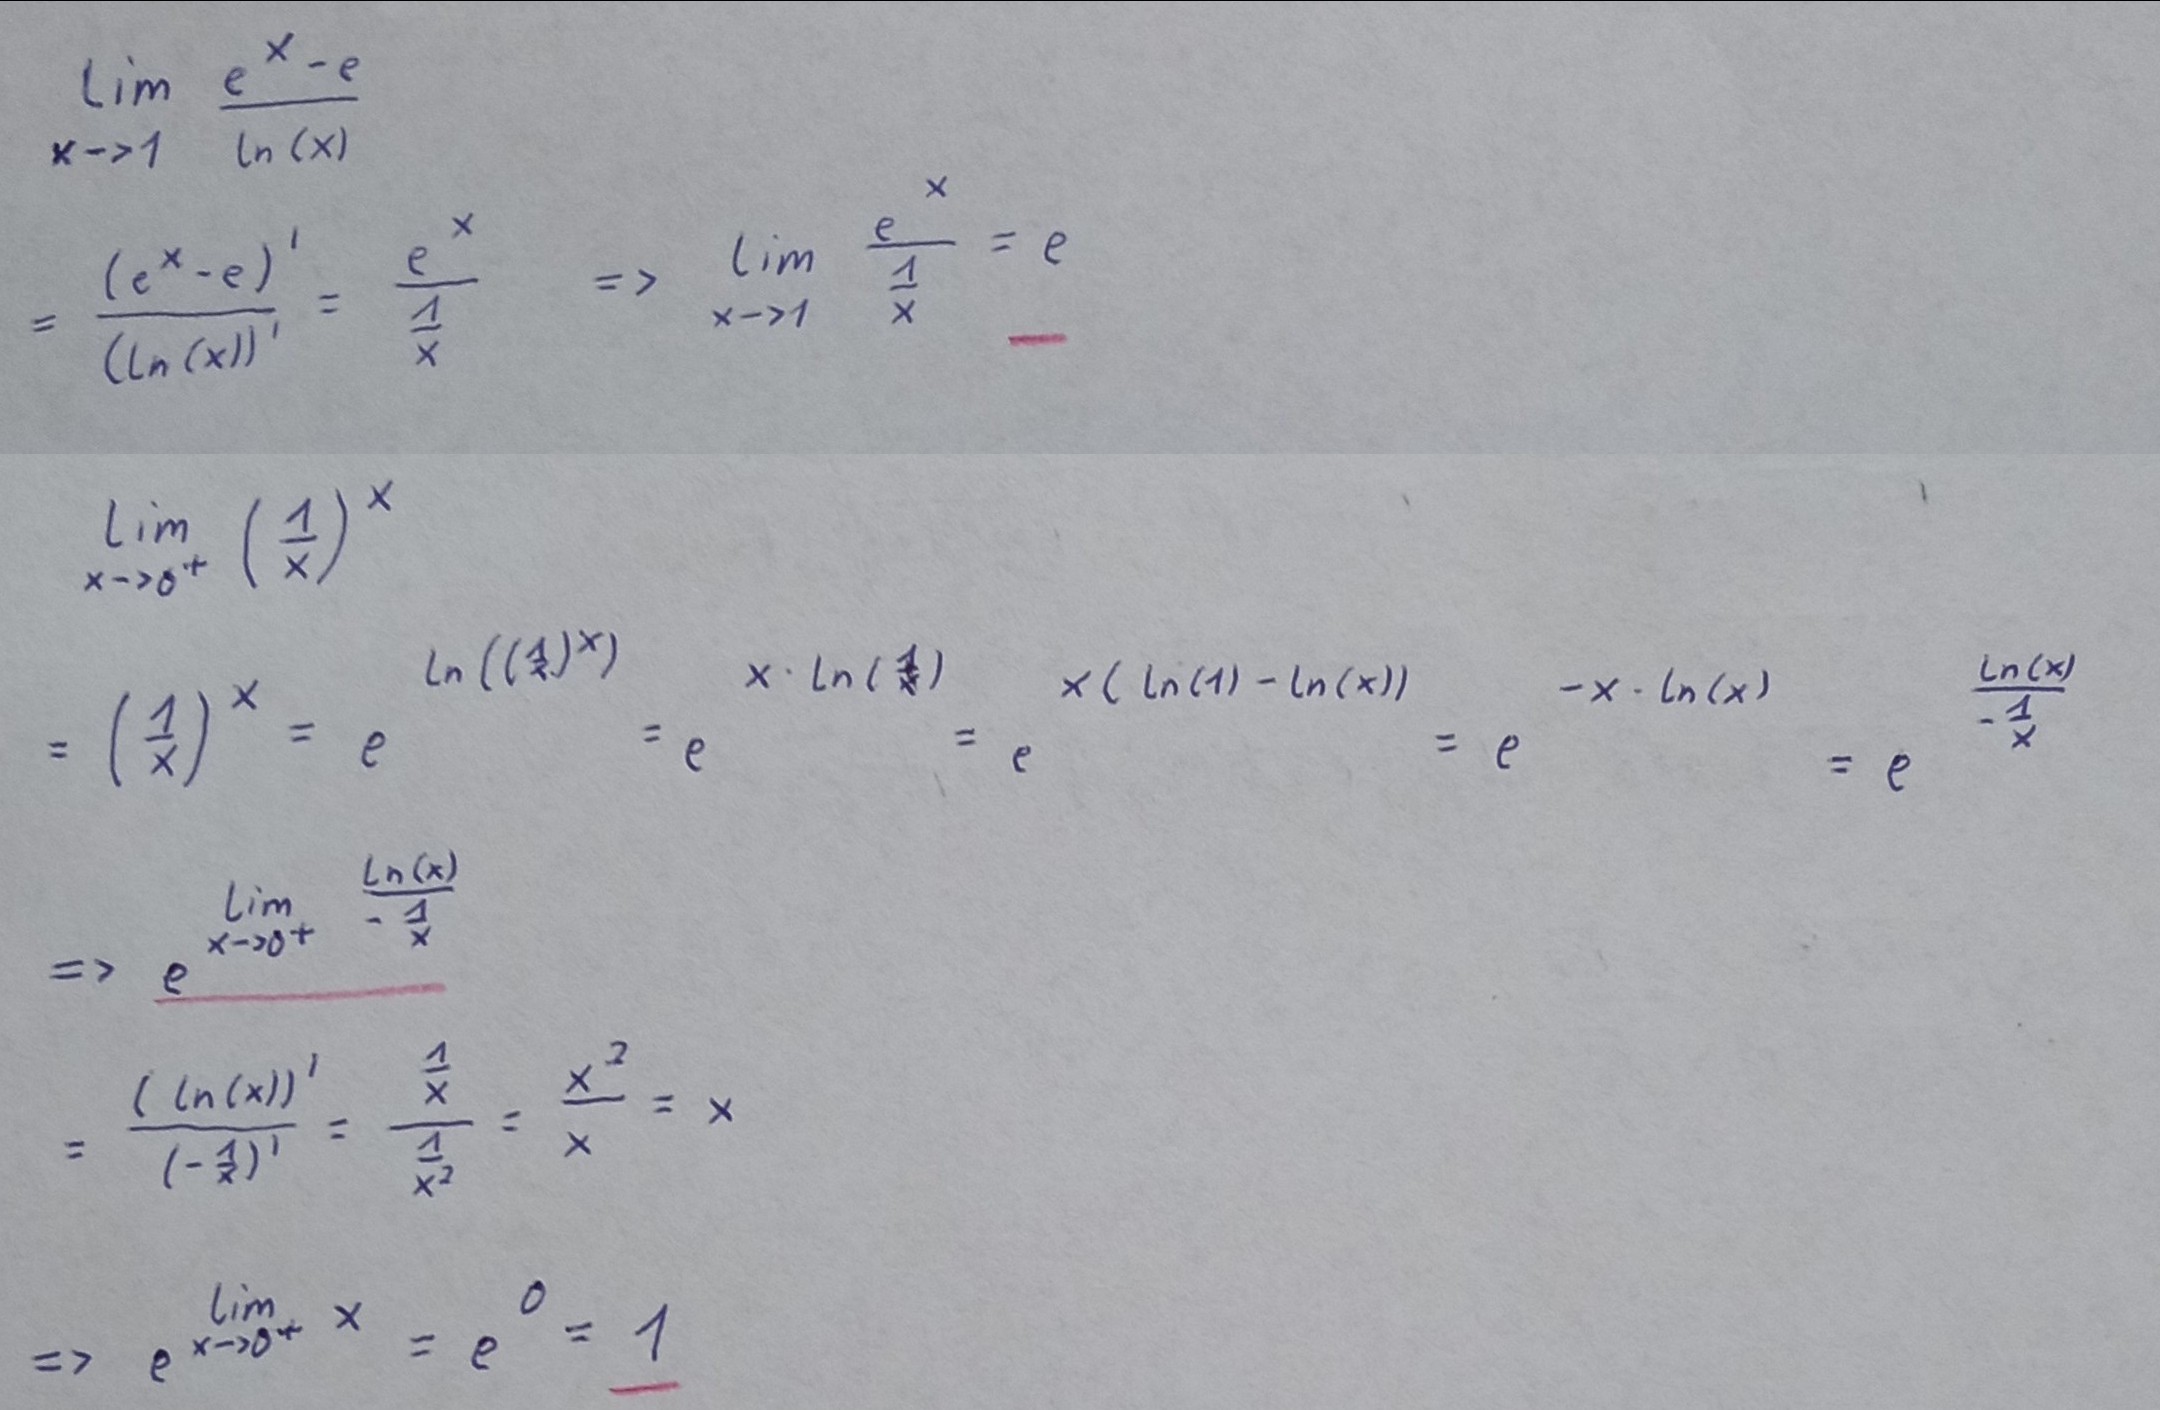 lim x->1 (e^x - e)/(ln(x))
= (e^x - e)'/(ln(x))' = e^x/(1/x) => lim x->1 e^x/(1/x) = e
lim x->0+ (1/x)^x
= (1/x)^x = e^(ln((1/x)^x)) = e^(x · ln(1/x)) = e^(x(ln(1) - ln(x))) = e^(-x · ln(x)) = e^(ln(x)/(-1/x))
=> e^(lim x->0+ ln(x)/(-1/x))
= (ln(x))'/(-1/x)' = (1/x)/(1/x^2) = x^2/x = x
=> e^(lim x->0+ x) = e^0 = 1